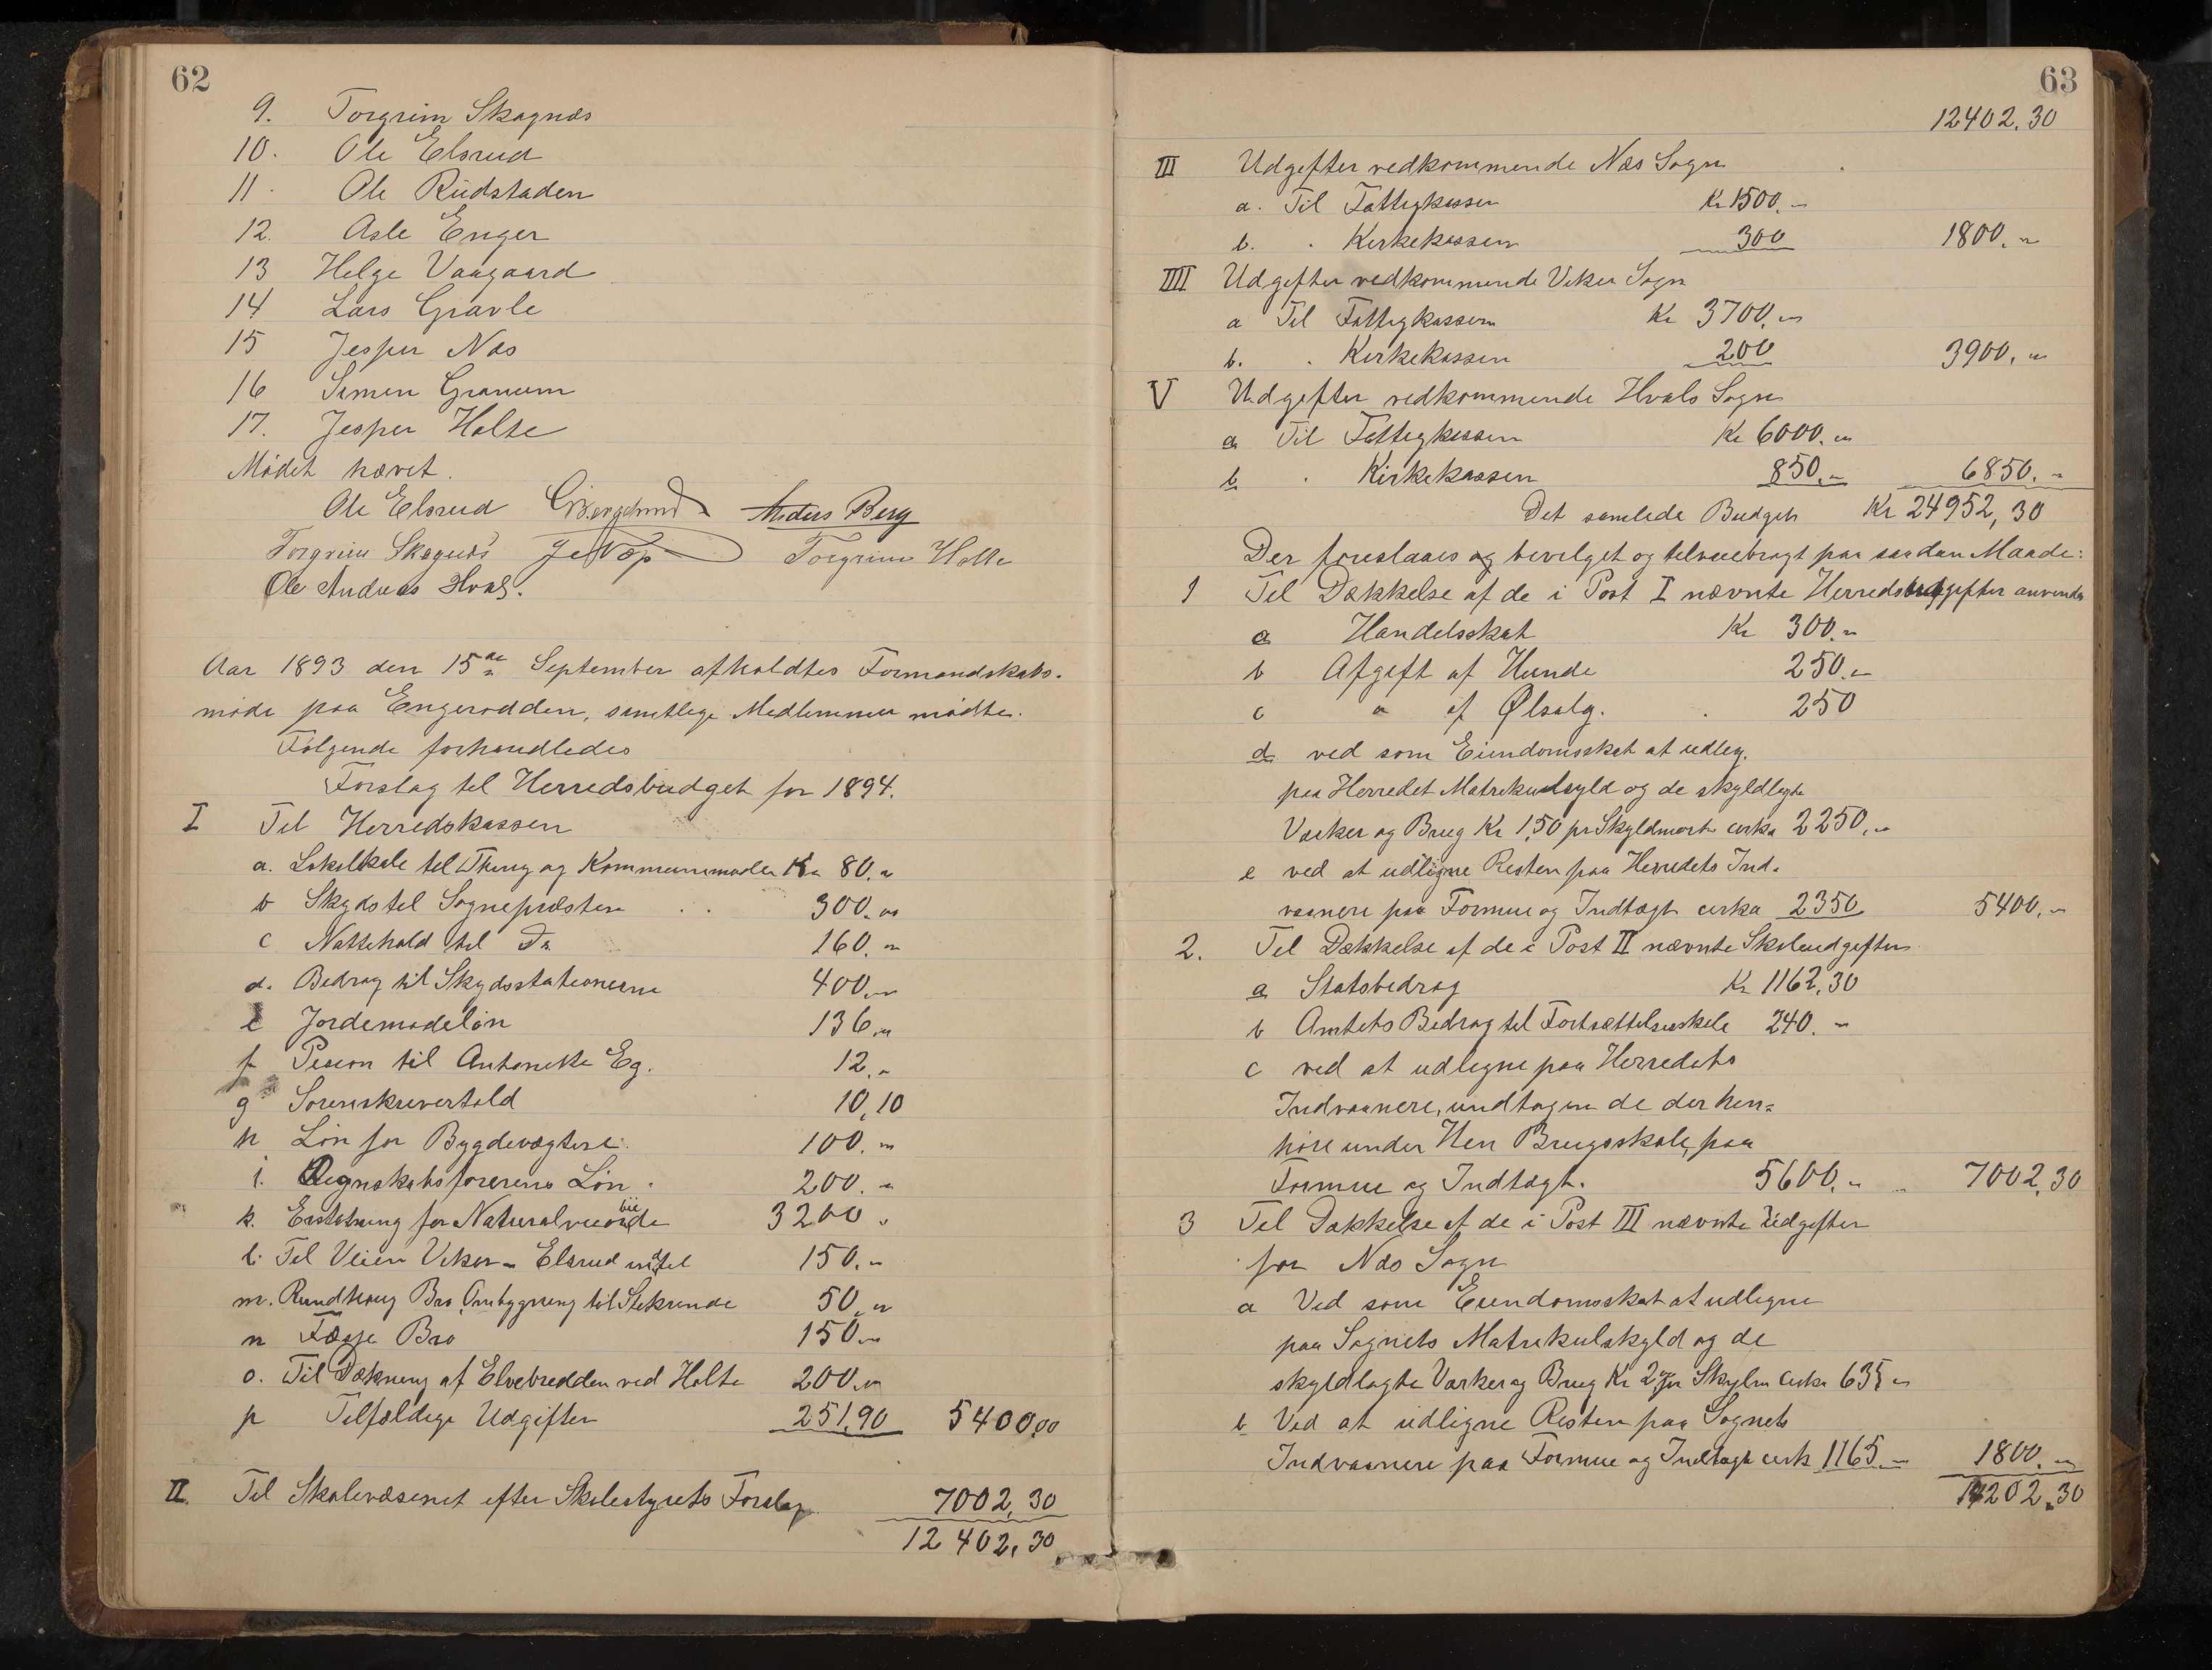 62
9. Torgrim Skagnæs
10. Ole Elsrud
11. Ole Rudstaden
12. Asle Enger
13 Helge Vaagaard
14 Lars Gravle
15 Jesper Næs
16 Simen Granum
17. Jesper Holte
Mødet hævet.
Ole Elsrud Anders Berg
Torgrim Skagnæs Torgrim Holte
Ole Andreas Hval.
Aar 1893 den 15de September afholdtes Formandskabs-
møde paa Engerodden, samtlige Medlemmer mødte.
Følgende forhandledes
Forslag til Herredsbudget for 1894.
I Til Herredskassen
a. Lokale til Thing og Kommunemøder Kr 80.„
b Skyds til Sognepræsten 300.„
c Nattehold til Do 160.„
d. Bidrag til Skydsstationerne 400.„
e Jordemoderløn 136.„
f Pesion til Antonette Eg. 12.„
g Sorenskrivertold 10,10
h Løn for Bygdevægtere. 100.„
i. Regnskabsførerens Løn. 200.„
k. Erstatning for Naturalveiarbeide 3200.
l. Til Veien Veker - Elsrud 150.„
m. Rundhaug Bro Ombygning til Stekrende 50.„
n Fægje Bro 150.„
o. Til Dækning af Elvebredden ved Holte 200.„
p Tilfældige Udgifter 251.90 5400,00
II. Til Skolevæsenet efter Skolestyrets Forslag 7002,30
12402,30
63
12402,30
III Udgifter vedkommende Næs Sogn
a. Til Fattigkassen Kr 1500.„
b. " Kirkekassen 300 1800.„
IIII Udgifter vedkommende Veker Sogn
a Til Fattigkassen Kr 3700.„
b. " Kirkekassen 200 3900.„
V Udgifter vedkommende Hvals Sogn
a Til Fattigkassen Kr 6000.„
b " Kirkekassen 850.„ 6850.„
Det samlede Budget Kr 24952,30
Der foreslaaes og bevilget og tilveiebragt paa saadan Maade:
1 Til Dækkelse af de i Post I nævnte Herredsudgifter anvendes
a Handelsskat Kr 300.„
b Afgift af Hunde 250.„
c " af Ølsalg. 250
d ved som Eiendomsskat at udlig.
paa Herredet Matrikulskyld og de skyldlagte
Værker og Brug Kr 1,50 pr Skyldmark cirka 2250.„
e ved at udligne Resten paa Herredets Ind-
vaanere paa Formue og Indtægt cirka 2350 5400.„
2. Til Dækkelse af de i Post II nævnte Skoleudgifter
a Statsbidrag Kr 1162,30
b Amtets Bidrag til Fortsættelsesskole 240.„
c ved at udligne paa Herredets
Indvaanere, undtagen de der hen-
høre under Hen Brugsskole, paa
Formue og Indtægt. 5600.„ 7002,30
3 Til Dækkelse af de i Post III nævnte Udgifter
for Næs Sogn
a Ved som Eiendomsskat at udligne
paa Sognets Matrikulskyld og de
skyldlagte Værker og Brug Kr 2 pr Skylm cirka 635 „
b Ved at udligne Resten paa Sognets
Indvaanere paa Formue og Indtægt cirk 1165.„ 1800.„
14202,30